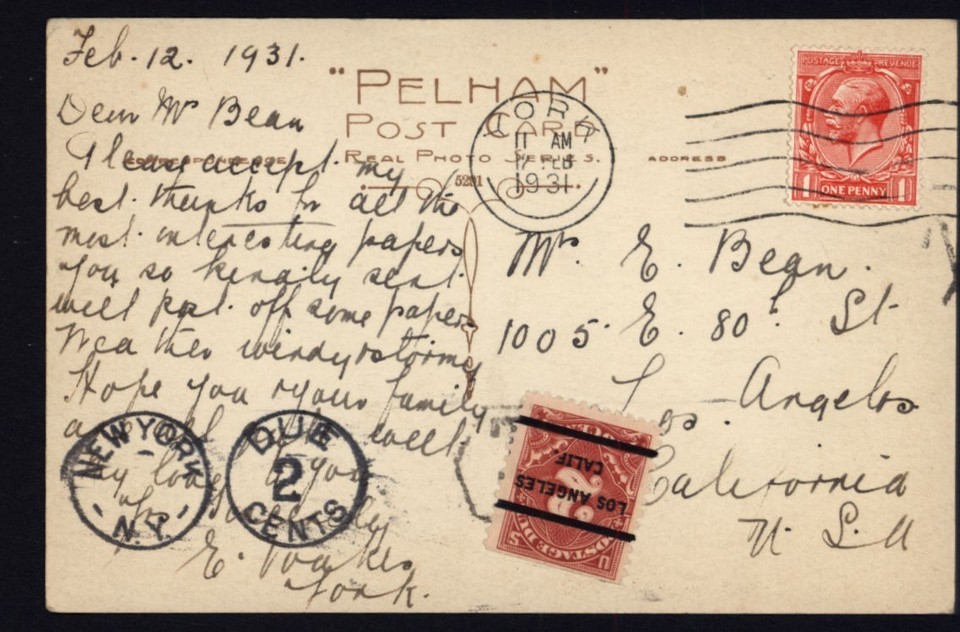 Feb. 12. 1931.
"PELHAM"
POST CARD
REAL PHOTO SERIES.
CORRESPONDENCE
ADDRESS
5291
Dear Mr Bean
Please accept my
best thanks for all the
most interesting papers
you so kindly sent.
will post off some papers
Weather windy & stormy
Hope you & your family
a well
my to you
E.
York.
YORK
11 AM
FEB
1931
POSTAGE REVENUE
1 ONE PENNY 1
Mr E. Bean.
1005 E. 80. St
Los Angelos
California
U S.A
NEW YORK
N.Y.
DUE
2
CENTS
LOS ANGELES
CALIF.
2
POSTAGE DUE
U S